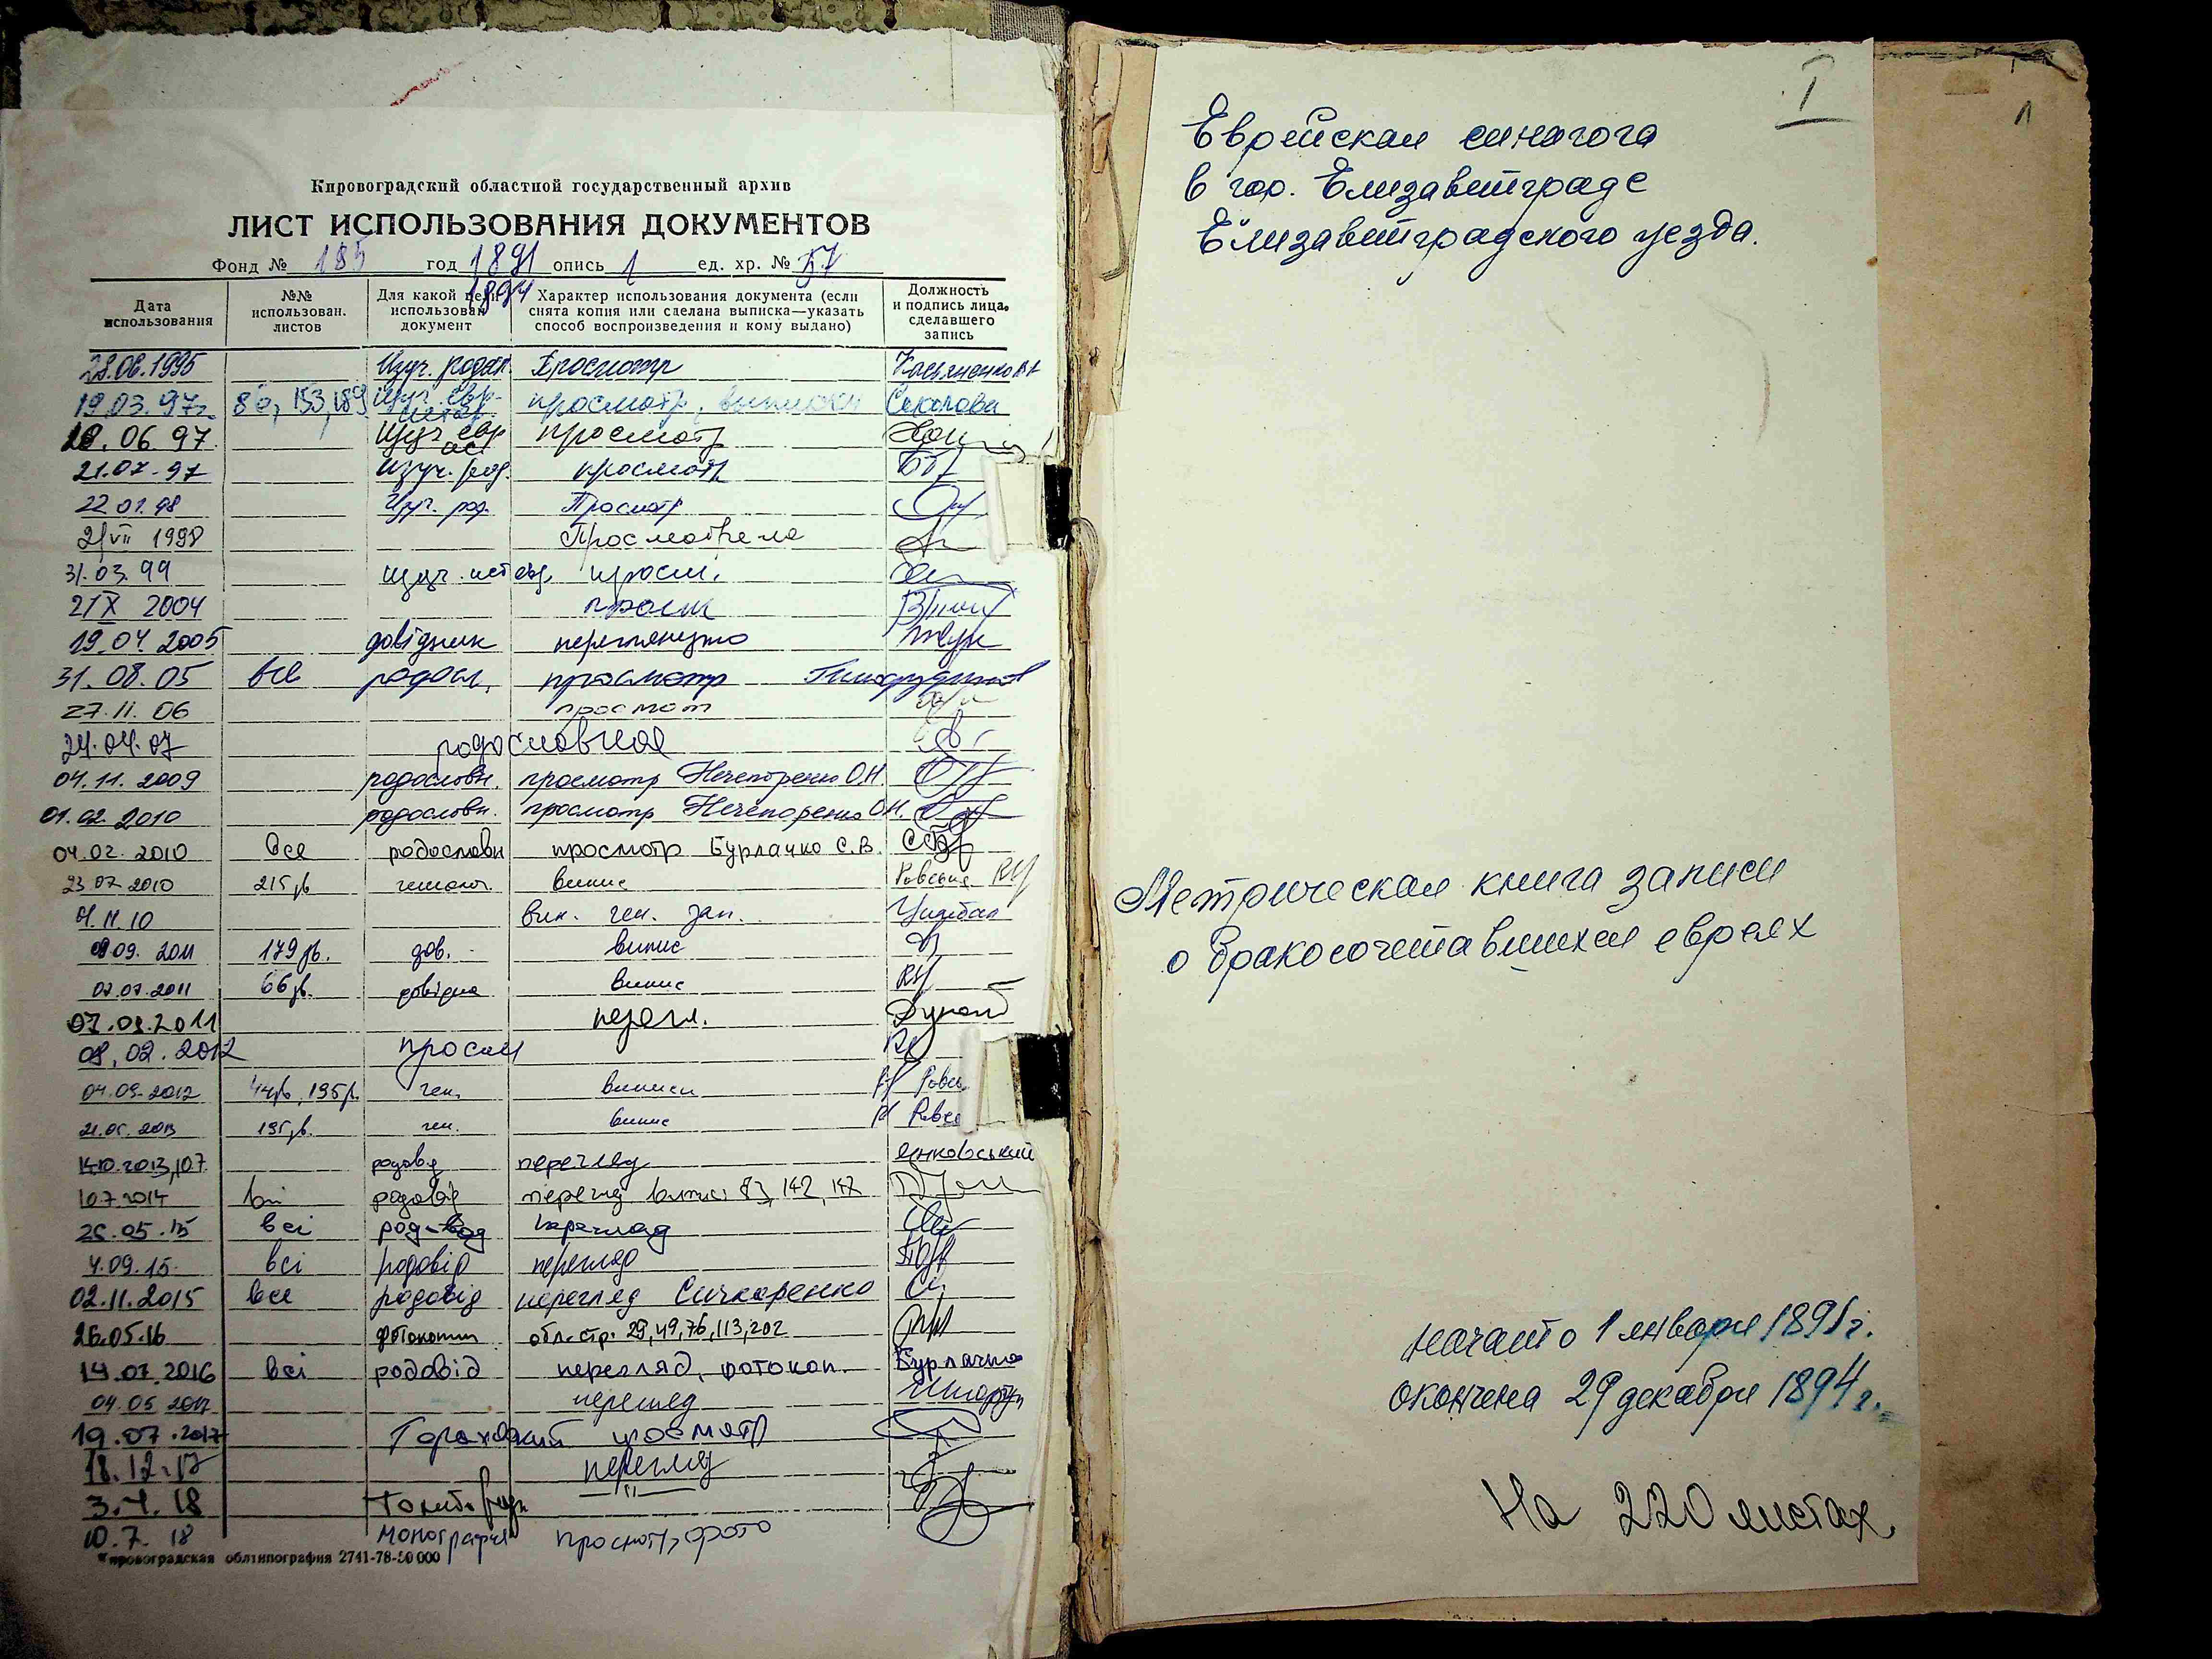 Кировоградский областной государственный архив
ЛИСТ ИСПОЛЬЗОВАНИЯ ДОКУМЕНТОВ
Фонд № 185 год 1891 опись 1 ед. хр. № 57
1894
Дата использования
№№ использован. листов
Для какой цели использован документ
Характер использования документа (если снята копия или сделана выписка—указать способ воспроизведения и кому выдано)
Должность и подпись лица, сделавшего запись
28.08.1995 Изуч. родосл. Просмотр
19.03.97г. 153, 189 Изуч. евр. истор. просмотр, выписки Соколова
18.06.97. Изуч. евр. ист просмотр
21.07.97 изуч. род. просмотр
22 01.98 Изуч. род. Просмотр
2/VII 1998 Просмотрела
31.03.99 изуч. ист евр. просм.
2/IX 2004 просм
19.04.2005 довідник переглянуто
31.08.05 все родосл. просмотр
27.11.06 просмот
24.04.07 родословная
04.11.2009 родословн. просмотр Нечепоренко О.Н.
01.02.2010 родословн. просмотр Нечепоренко О.Н.
04.02.2010 Все родословн просмотр Бурлачко С.В.
23.07.2010 215зв випис
вип. ген. зап.
09.09.2011 179зв. дов. випис
07.07.2011 66зв. довідка випис
07.09.2011 перегл.
08.02.2012 просм
04.09.2012 44зв, 195з. ген. виписи
21.05.2013 195зв. ген. випис
14.10.2013, родовід перегляд Янковський
10.7.2014 всі родовід перегляд 142, 147
26.05.15 всі перегляд
4.09.15. всі родовід перегляд
02.11.2015 все родовід перегляд Сичкаренко
26.05.16 фотокопии обл. стр. 29,49,76,113,202
14.07.2016 всі родовід перегляд, фотокоп. Бурлачко
04 05 2017 перегляд
19.07.2017 просмотр
18.12.17 перегляд
3.4.18
10.7.18 монография просмотр, фото
Кировоградская облтипография 2741-78-50 000
I
1
Еврейская синагога
в гор. Елизаветграде
Елизаветградского уезда.
Метрическая книга записи
о бракосочетавшихся евреях
начато 1 января 1891г.
окончена 29 декабря 1894г.
На 220 листах.